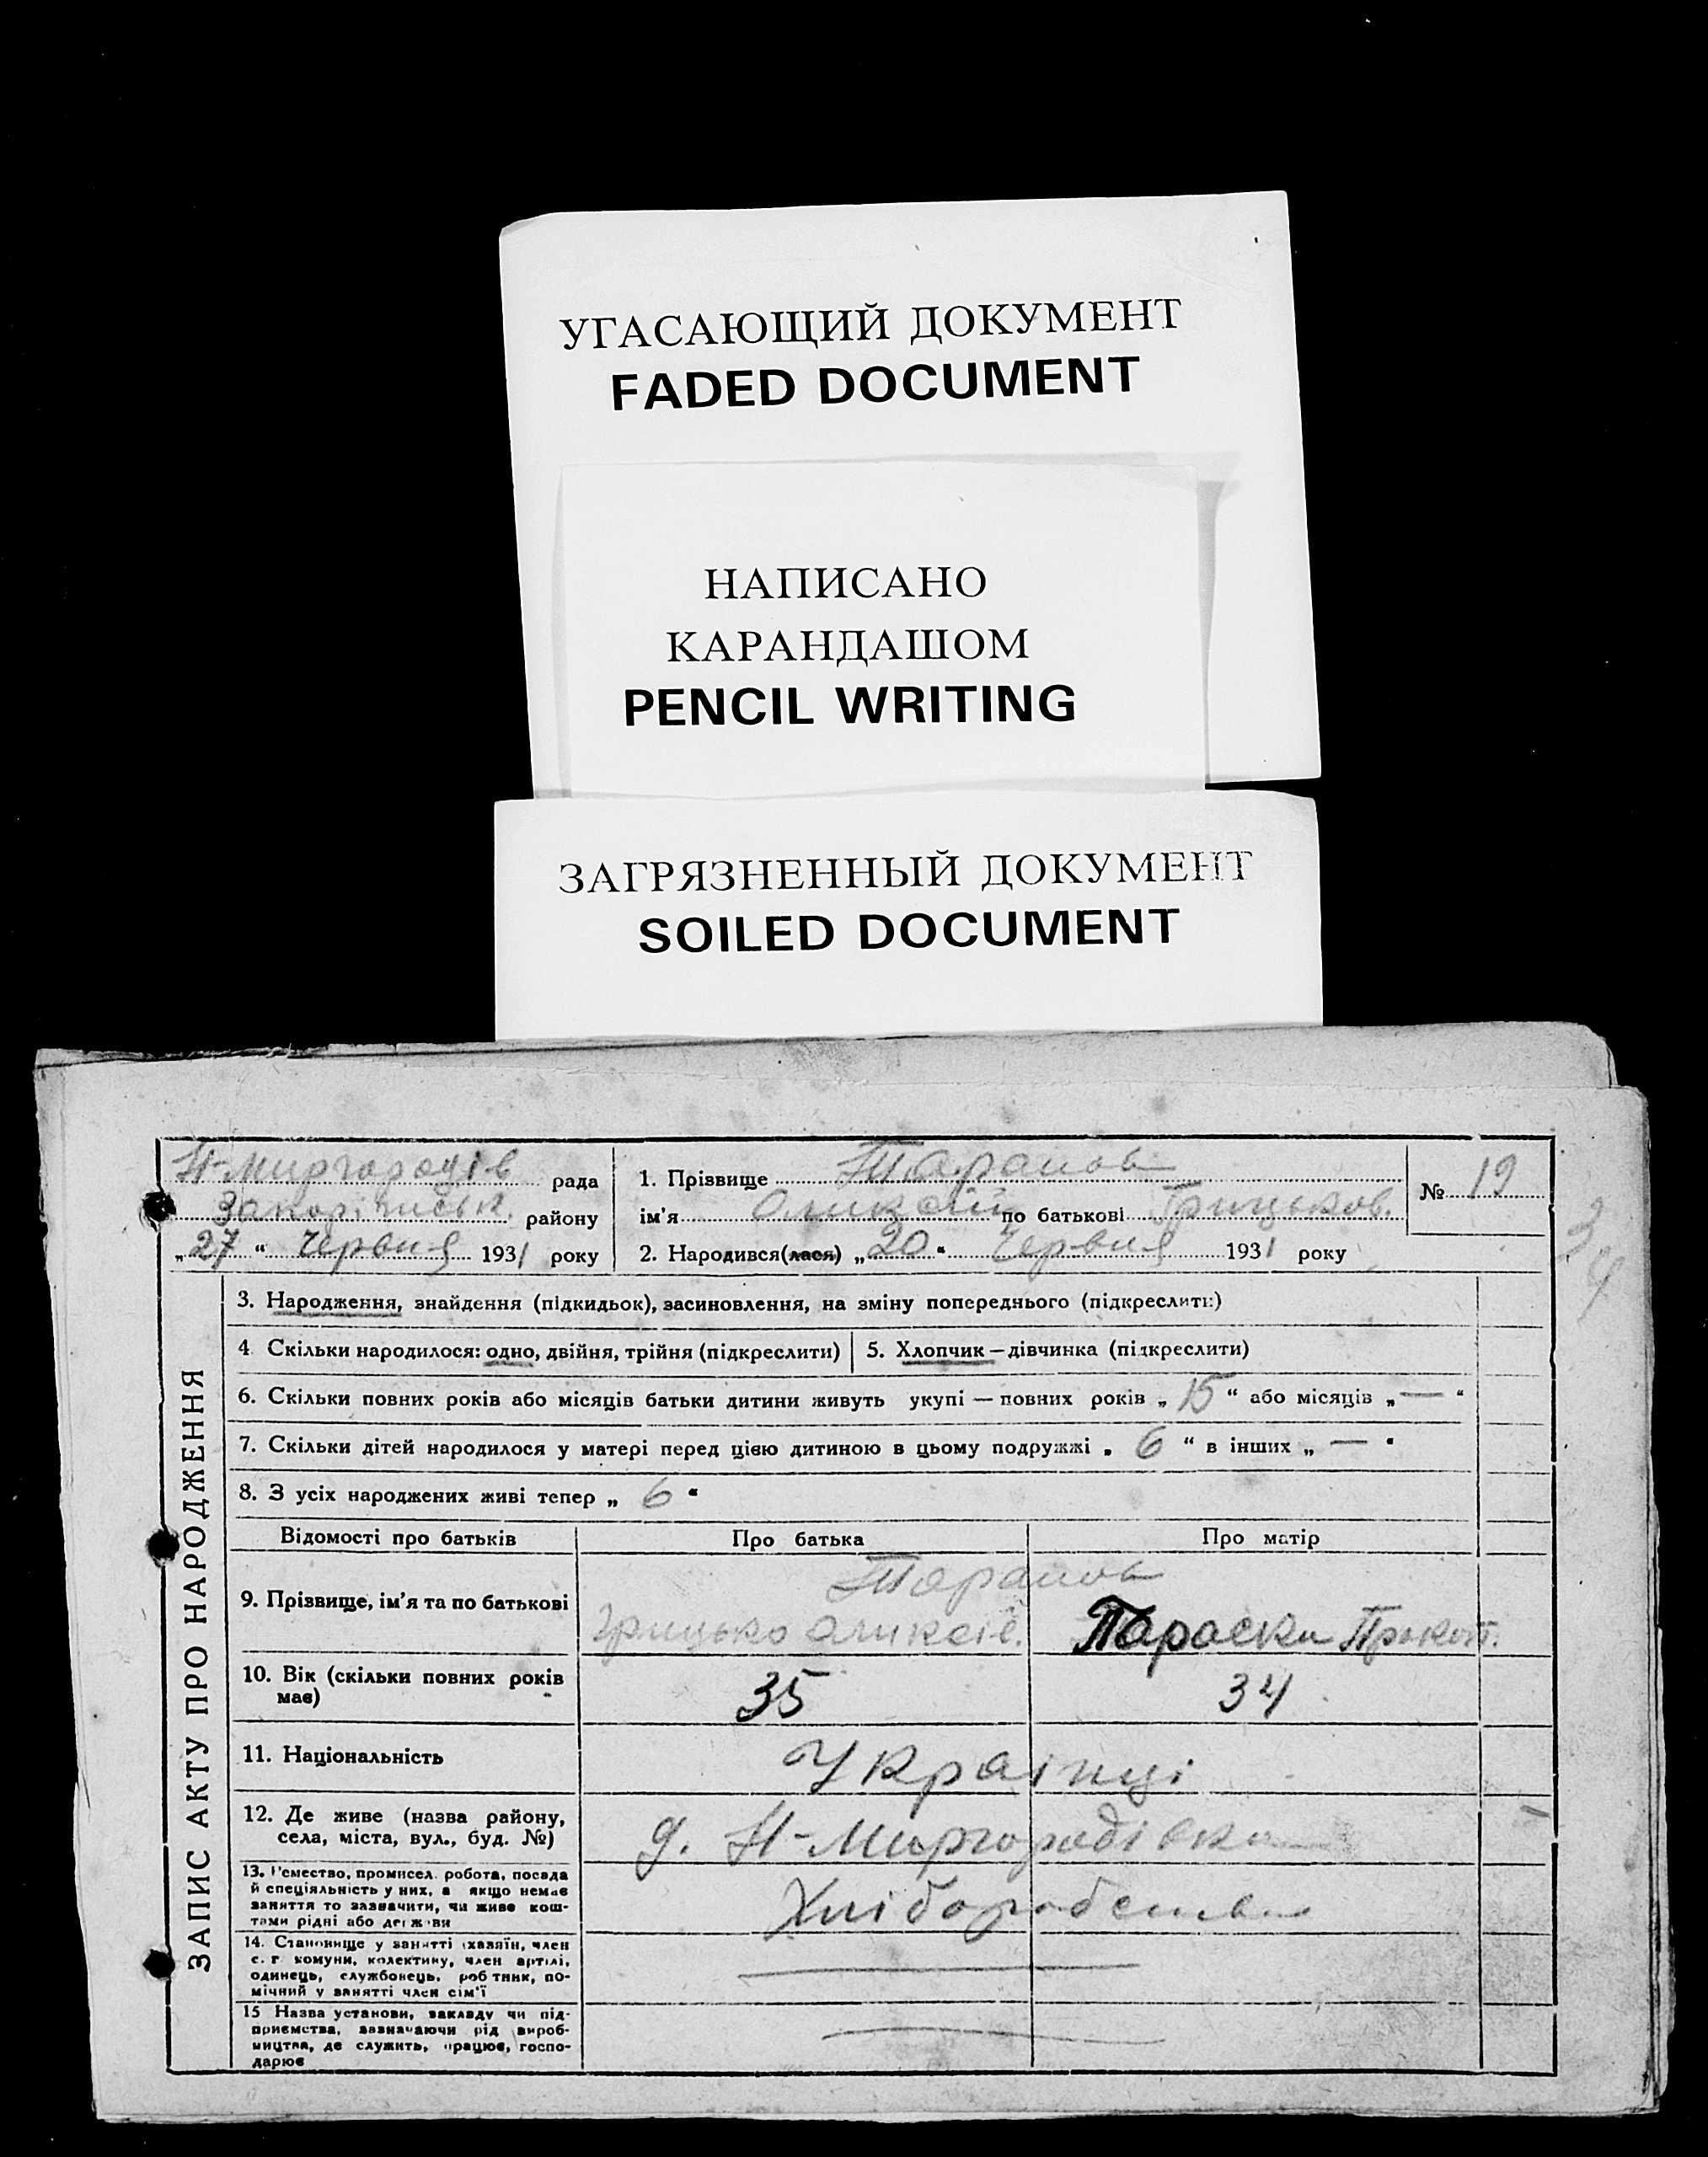 УГАСАЮЩИЙ ДОКУМЕНТ
FADED DOCUMENT
НАПИСАНО
КАРАНДАШОМ
PENCIL WRITING
ЗАГРЯЗНЕННЫЙ ДОКУМЕНТ
SOILED DOCUMENT
Н-Миргородів рада
району
„27“ Червня 1931 року
1. Прізвище Таранов
ім'я Оликсій по батькові Грицьков.
2. Народився(лася) „20“ Червня 1931 року
№ 19
ЗАПИС АКТУ ПРО НАРОДЖЕННЯ
3. Народження, знайдення (підкидьок), засиновлення, на зміну попереднього (підкреслити)
4 Скільки народилося: одно, двійня, трійня (підкреслити)
5. Хлопчик — дівчинка (підкреслити)
6. Скільки повних років або місяців батьки дитини живуть укупі — повних років „15“ або місяців „—“
7. Скільки дітей народилося у матері перед цією дитиною в цьому подружжі „6“ в інших „—“
8. З усіх народжених живі тепер „6“
Відомості про батьків Про батька Про матір
9. Прізвище, ім'я та по батькові
Таранов
Грицько Оликсіє. Параска Прокоп.
10. Вік (скільки повних років
має)
35 34
11. Національність Українці
12. Де живе (назва району,
села, міста, вул., буд. №)
д. Н-Миргородівка
13. Ремество, промисел. робота, посада
й спеціяльність у них, а якщо немає
заняття то зазначити, чи живе кош-
тами рідні або держави
Хліборобства
14. Становище у занятті (хазяїн, член
с. г. комуни, колективу, член артілі,
одинець, службовець, робтник, по-
мічний у занятті член сім'ї
15 Назва установи, закладу чи під-
приємства, зазначаючи рід вироб-
ництва, де служить, працює, госпо-
дарює